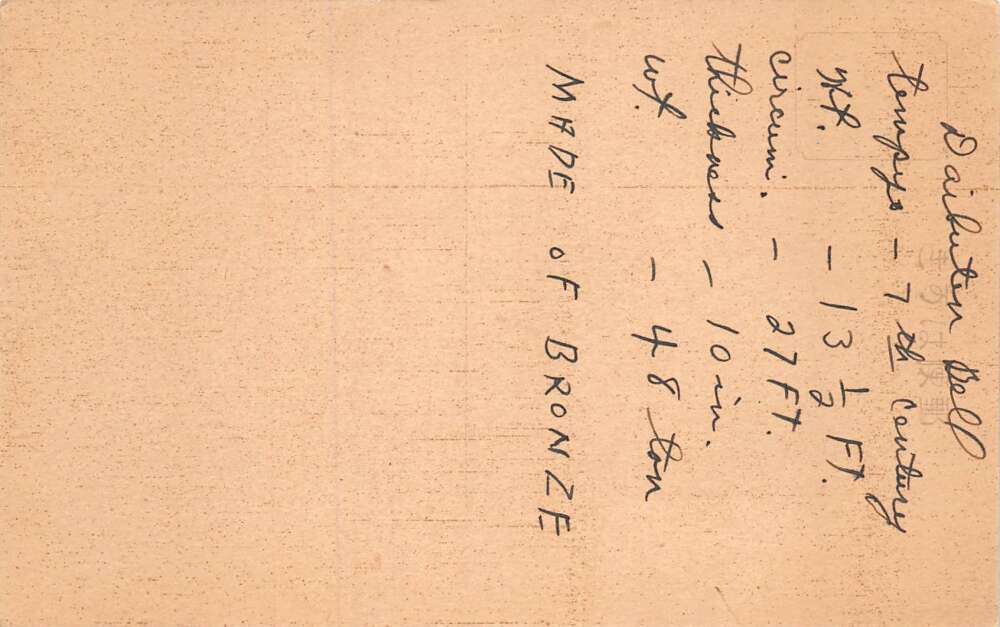 Daibutsu Bell
tempyo - 7th century
Ht. - 13 1/2 FT.
circum. - 27 FT.
thickness - 10 in.
wt. - 48 ton
MADE OF BRONZE